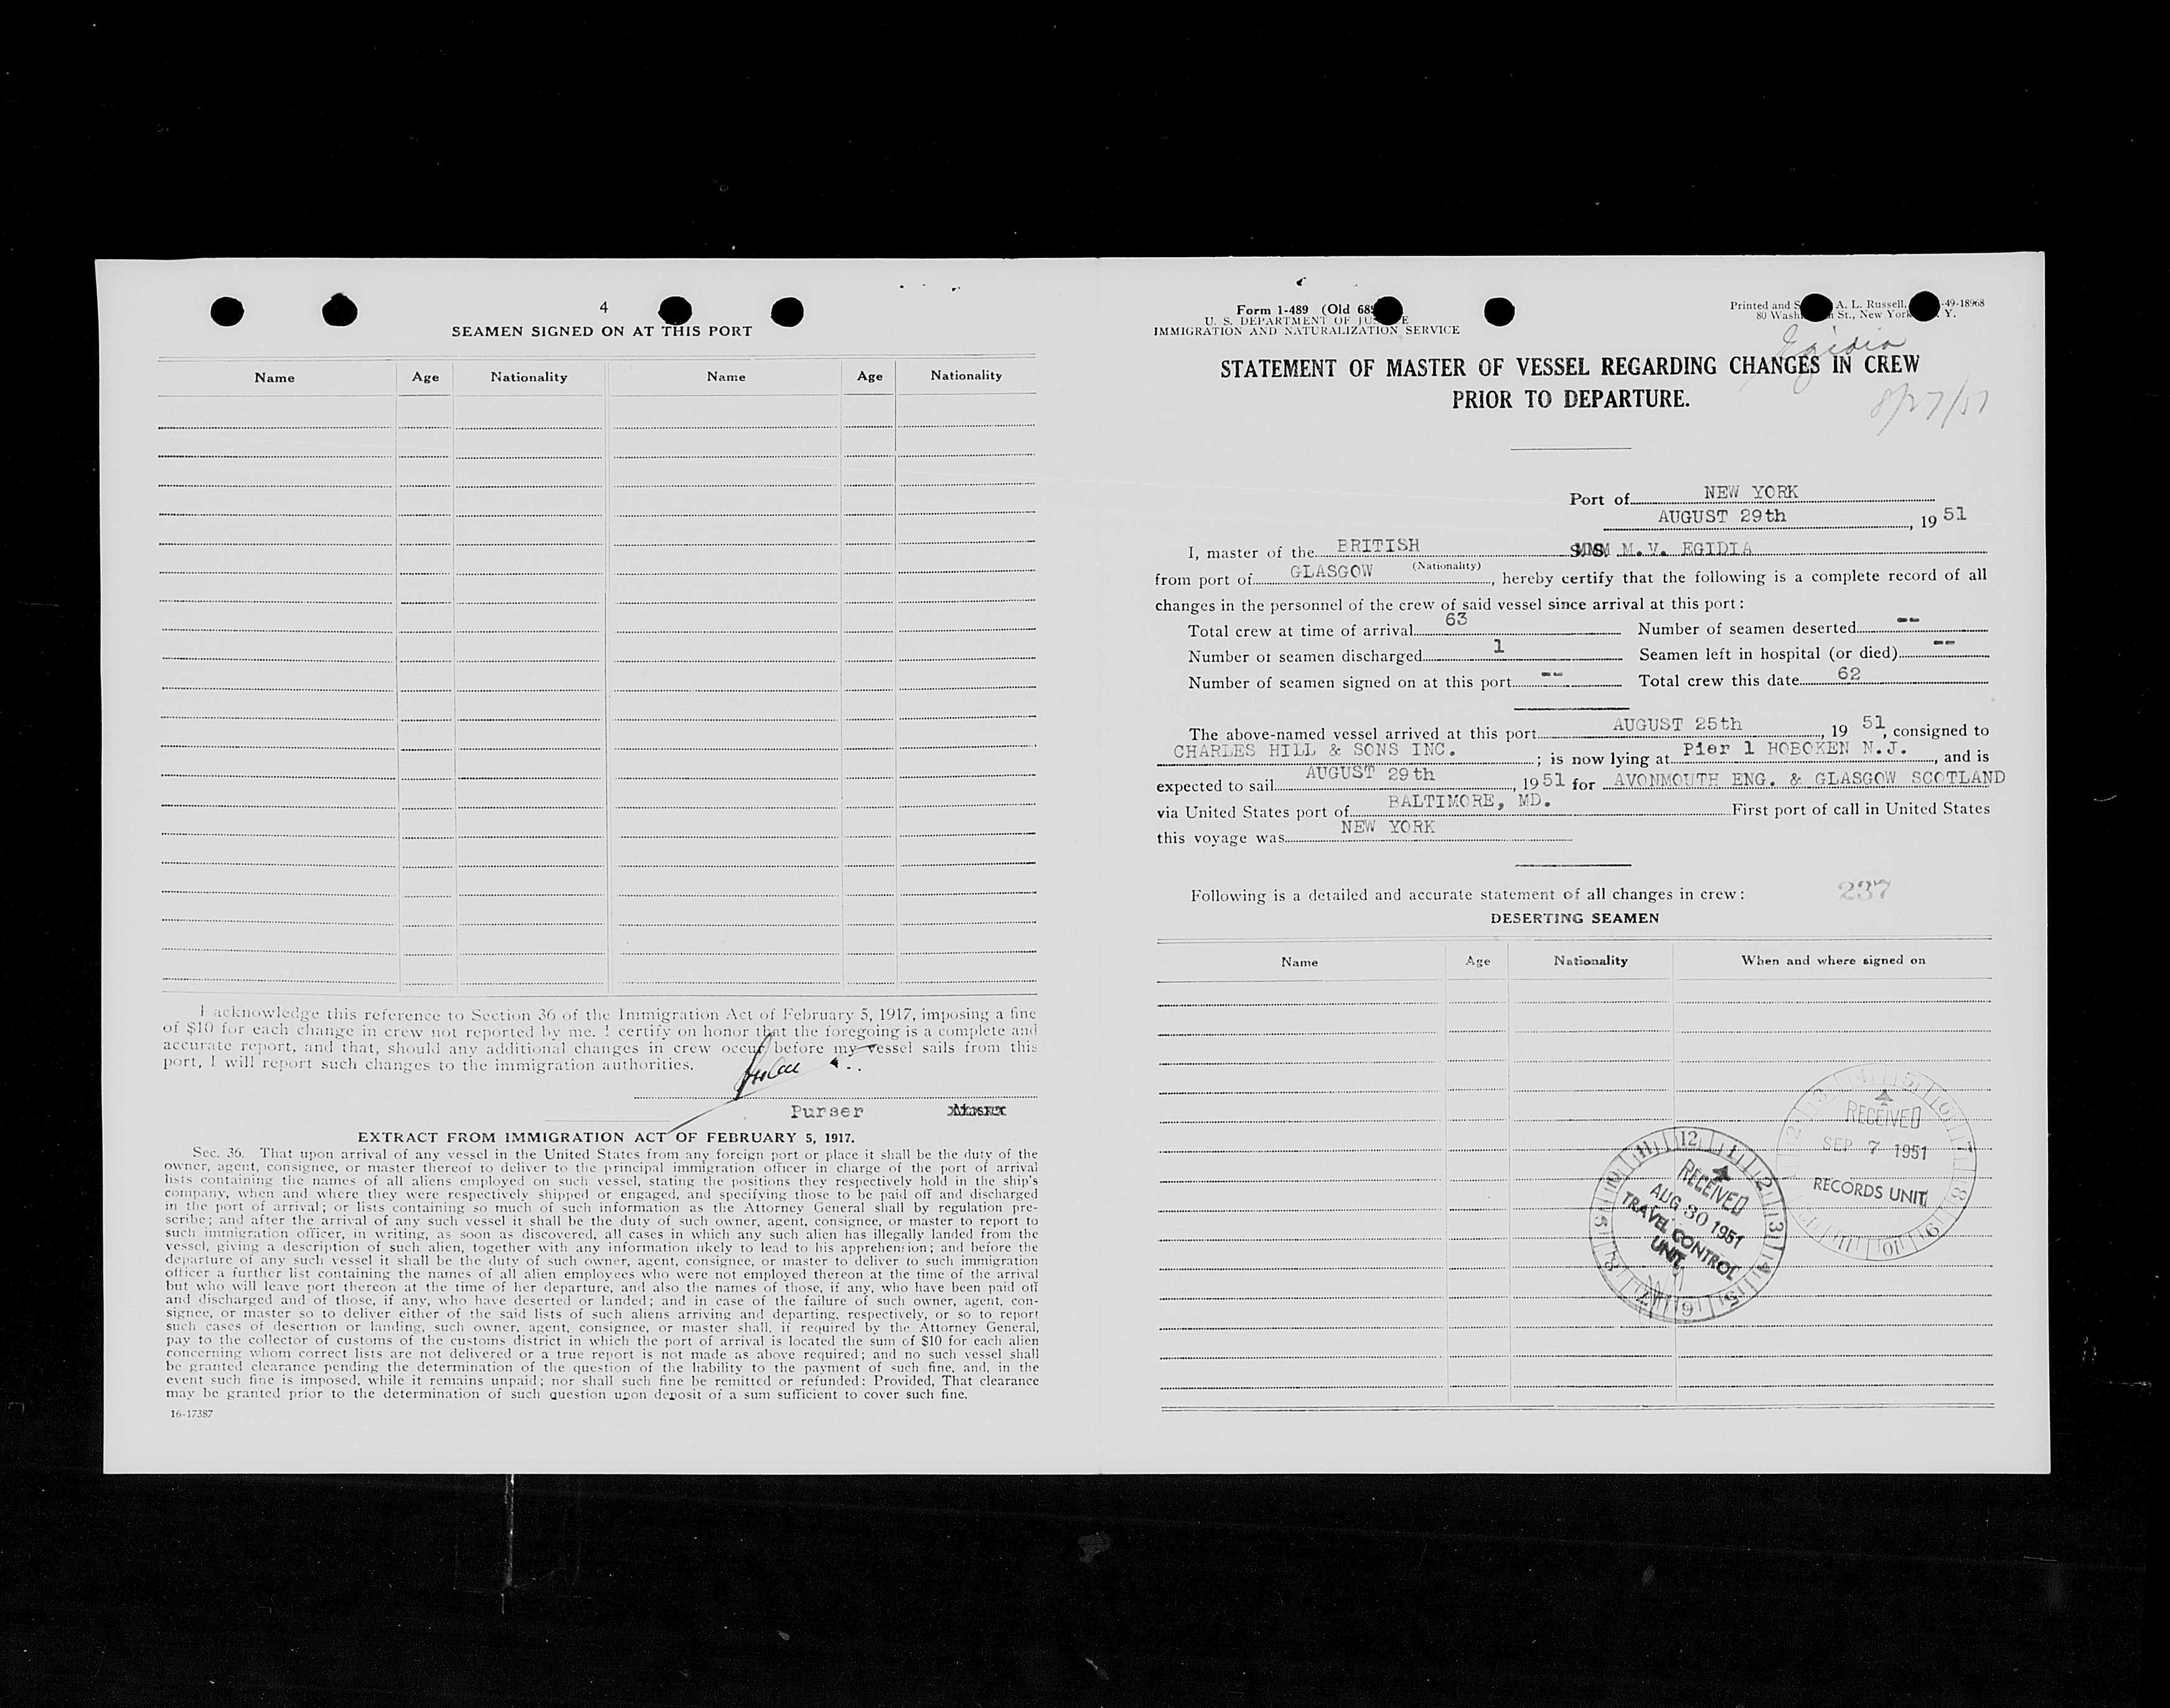 4
SEAMEN SIGNED ON AT THIS PORT
Name Age Nationality Name Age Nationality
I acknowledge this reference to Section 36 of the Immigration Act of February 5, 1917, imposing a fine
of $10 for each change in crew not reported by me. I certify on honor that the foregoing is a complete and
accurate report, and that, should any additional changes in crew occur before my vessel sails from this
port, I will report such changes to the immigration authorities.
Purser Master
EXTRACT FROM IMMIGRATION ACT OF FEBRUARY 5, 1917.
Sec. 36. That upon arrival of any vessel in the United States from any foreign port or place it shall be the duty of the
owner, agent, consignee, or master thereof to deliver to the principal immigration officer in charge of the port of arrival
lists containing the names of all aliens employed on such vessel, stating the positions they respectively hold in the ship's
company, when and where they were respectively shipped or engaged, and specifying those to be paid off and discharged
in the port of arrival; or lists containing so much of such information as the Attorney General shall by regulation pre-
scribe; and after the arrival of any such vessel it shall be the duty of such owner, agent, consignee, or master to report to
such immigration officer, in writing, as soon as discovered, all cases in which any such alien has illegally landed from the
vessel, giving a description of such alien, together with any information likely to lead to his apprehension; and before the
departure of any such vessel it shall be the duty of such owner, agent, consignee, or master to deliver to such immigration
officer a further list containing the names of all alien employees who were not employed thereon at the time of the arrival
but who will leave port thereon at the time of her departure, and also the names of those, if any, who have been paid off
and discharged and of those, if any, who have deserted or landed; and in case of the failure of such owner, agent, con-
signee, or master so to deliver either of the said lists of such aliens arriving and departing, respectively, or so to report
such cases of desertion or landing, such owner, agent, consignee, or master shall, if required by the Attorney General,
pay to the collector of customs of the customs district in which the port of arrival is located the sum of $10 for each alien
concerning whom correct lists are not delivered or a true report is not made as above required; and no such vessel shall
be granted clearance pending the determination of the question of the liability to the payment of such fine, and, in the
event such fine is imposed, while it remains unpaid; nor shall such fine be remitted or refunded: Provided, That clearance
may be granted prior to the determination of such question upon deposit of a sum sufficient to cover such fine.
16-17387
Form 1-489 (Old 68
U. S. DEPARTMENT OF JU E
IMMIGRATION AND NATURALIZATION SERVICE
Printed and S A. L. Russell, -49-18968
80 Wash n St., New York Y.
Egidia
STATEMENT OF MASTER OF VESSEL REGARDING CHANGES IN CREW
PRIOR TO DEPARTURE.
8/27/51
Port of NEW YORK
AUGUST 29th, 19 51
I, master of the BRITISH M.V. EGIDIA
(Nationality)
from port of GLASGOW, hereby certify that the following is a complete record of all
changes in the personnel of the crew of said vessel since arrival at this port:
Total crew at time of arrival 63 Number of seamen deserted --
Number of seamen discharged 1 Seamen left in hospital (or died) --
Number of seamen signed on at this port -- Total crew this date 62
The above-named vessel arrived at this port AUGUST 25th, 19 51, consigned to
CHARLES HILL & SONS INC.; is now lying at Pier 1 HOBOKEN N.J., and is
expected to sail AUGUST 29th, 19 51 for AVONMOUTH ENG. & GLASGOW SCOTLAND
via United States port of BALTIMORE, MD. First port of call in United States
this voyage was NEW YORK
Following is a detailed and accurate statement of all changes in crew: 237
DESERTING SEAMEN
Name Age Nationality When and where signed on
RECEIVED
SEP 7 1951
RECORDS UNIT
RECEIVED
AUG 30 1951
TRAVEL CONTROL
UNIT